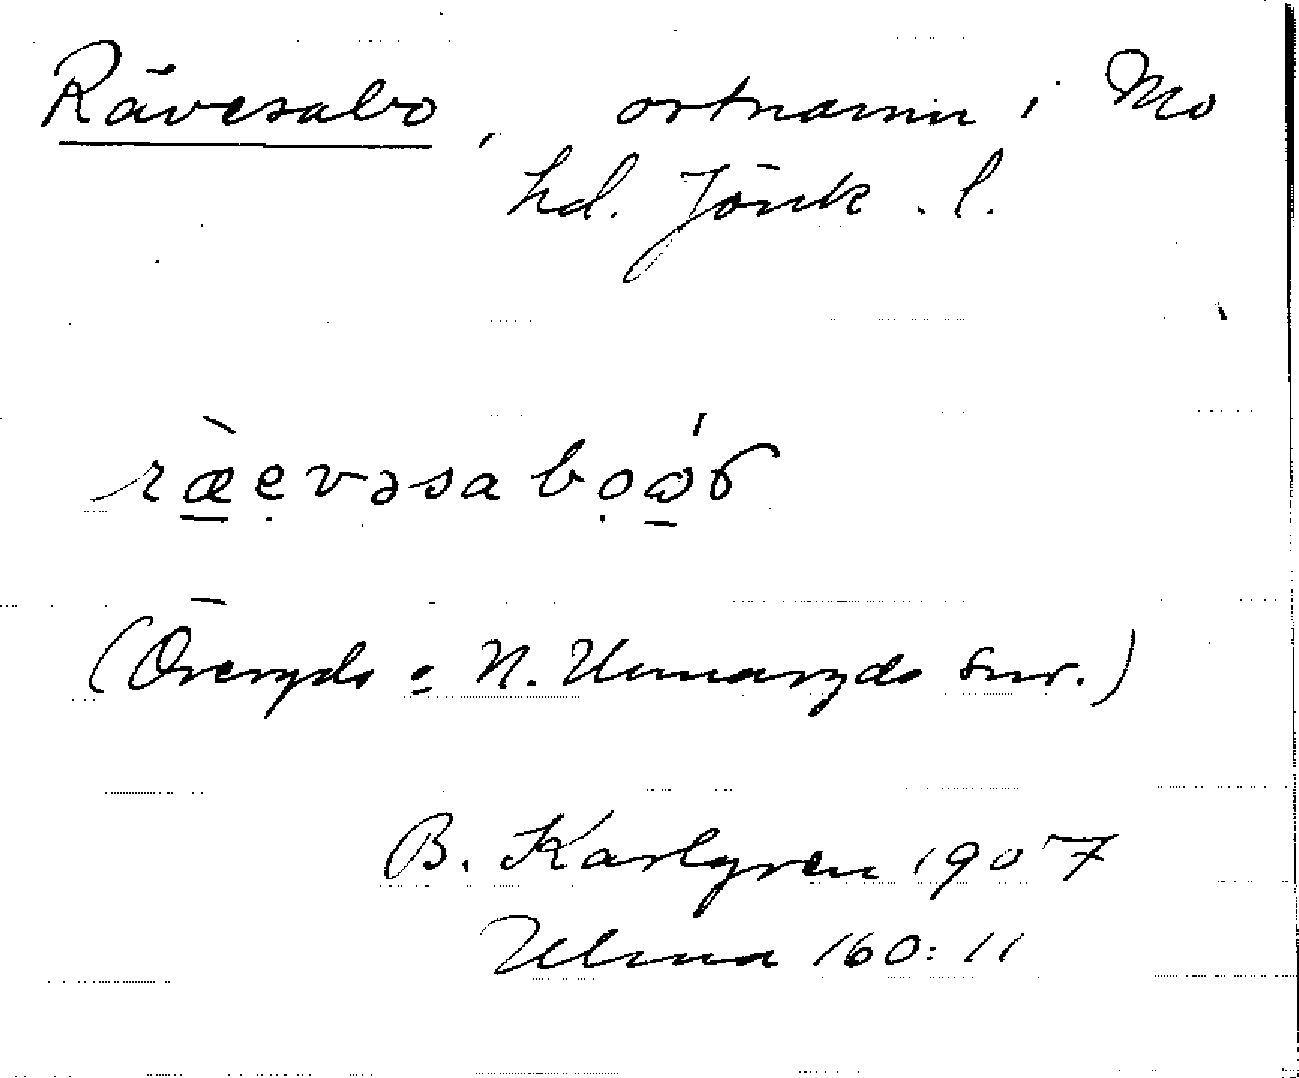 Rävesabo, ortnamn i Mo
hd. Jönk. l.
ræ̀evəsaboó
(Öreryds o N. Unnaryds snr.)
B. Karlgren 1907
Ulma 160:11